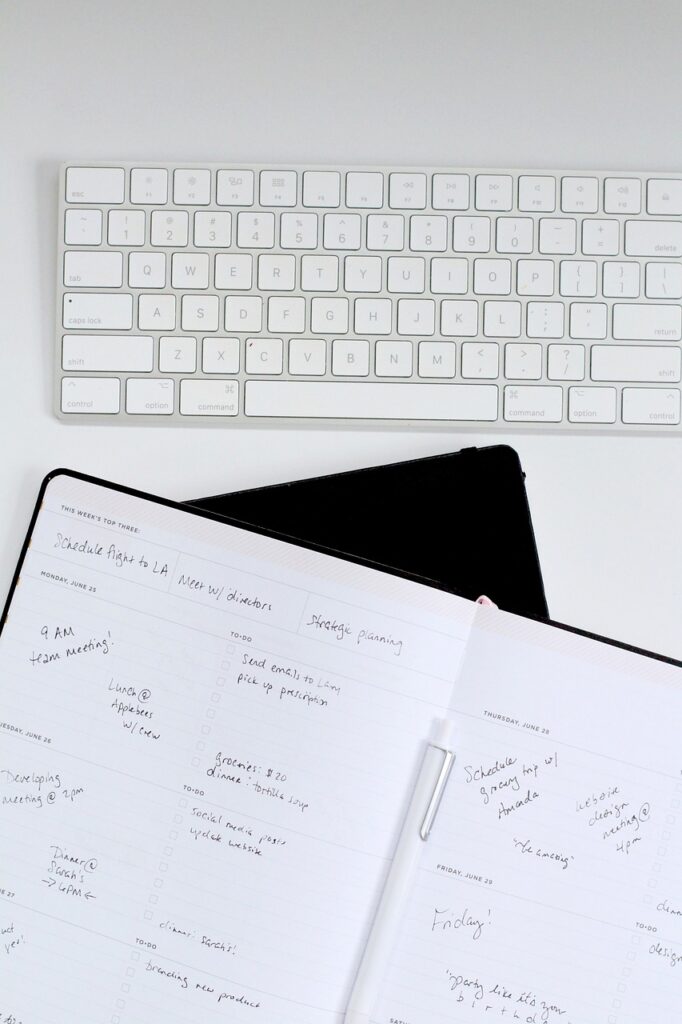 esc F1 F2 F3 F4 F5 F6 F7 F8 F9 F10 F11 F12
~ ! @ # $ % ^ & * ( ) _ + delete
` 1 2 3 4 5 6 7 8 9 0 - =
tab Q W E R T Y U I O P { } |
[ ] \
caps lock A S D F G H J K L : " return
; '
shift Z X C V B N M < > ? shift
, . /
control option command command option control
THIS WEEK'S TOP THREE:
Schedule flight to LA
Meet w/ directors
Strategic planning
MONDAY, JUNE 25
9 AM
team meeting!
Lunch @
Applebees
w/ crew
TO-DO
Send emails to Larry
pick up prescription
groceries: $20
dinner: tortilla soup
UESDAY, JUNE 26
Developing
meeting @ 2pm
Dinner @
Sarah's
→ 6PM ←
TO-DO
social media posts
update website
dinner: Sarah's!
E 27
uct
yet!
TO-DO
branding new product
THURSDAY, JUNE 28
Schedule
grocery trip w/
Amanda
website
design
meeting @
4pm
amazing"
FRIDAY, JUNE 29
Friday!
"party like it's your
birthd
TO-DO
design
SATU